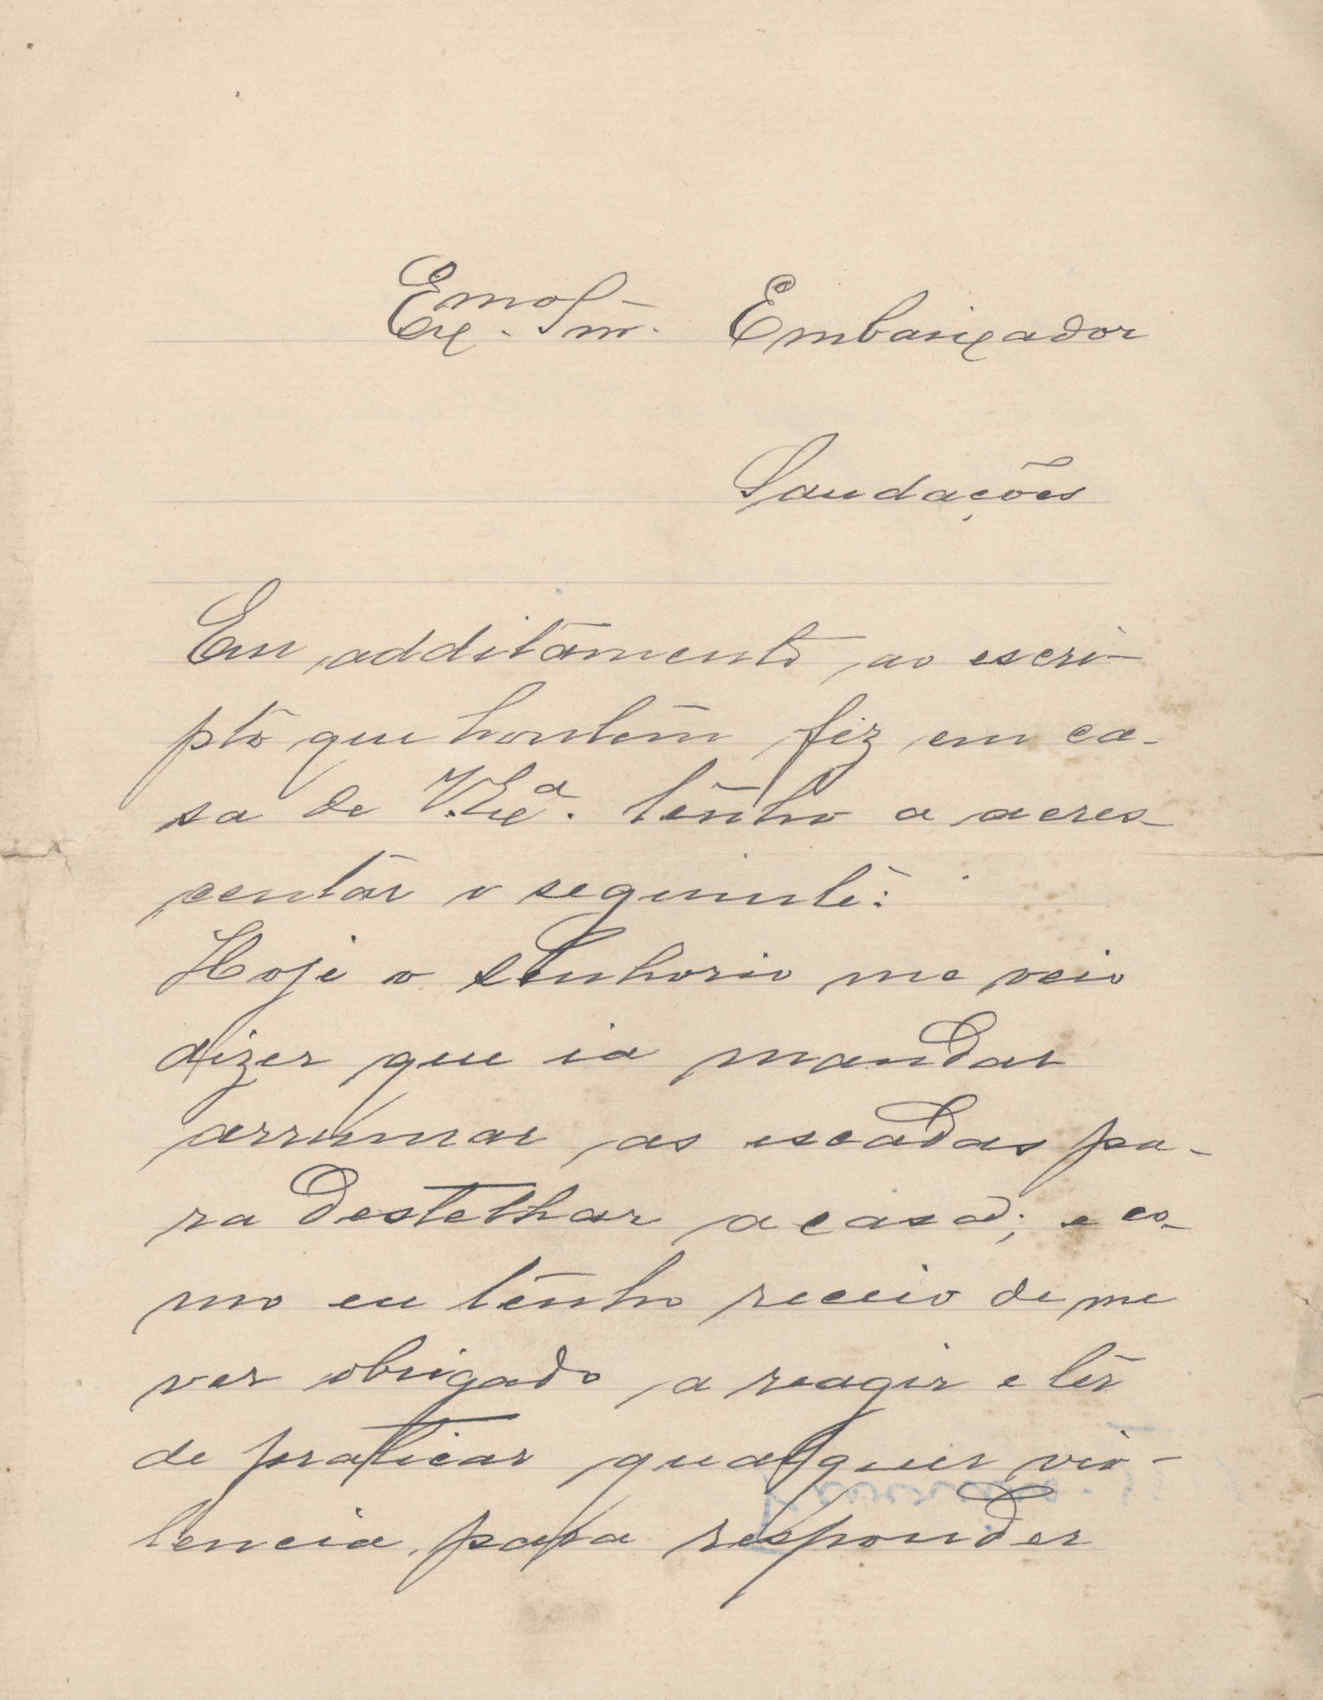 Exmo. Snr. Embaixador
Saudações
Em additamento ao escri-
pto que hontem fiz em ca-
sa de V. Exª. tenho a acres-
centar o seguinte:
Hoje o senhorio me veio
dizer que ia mandar
arrumar as escadas pa-
ra destelhar a casa; e co-
mo eu tenho receio de me
ver obrigado a reagir e ter
de praticar qualquer vio-
lencia para responder